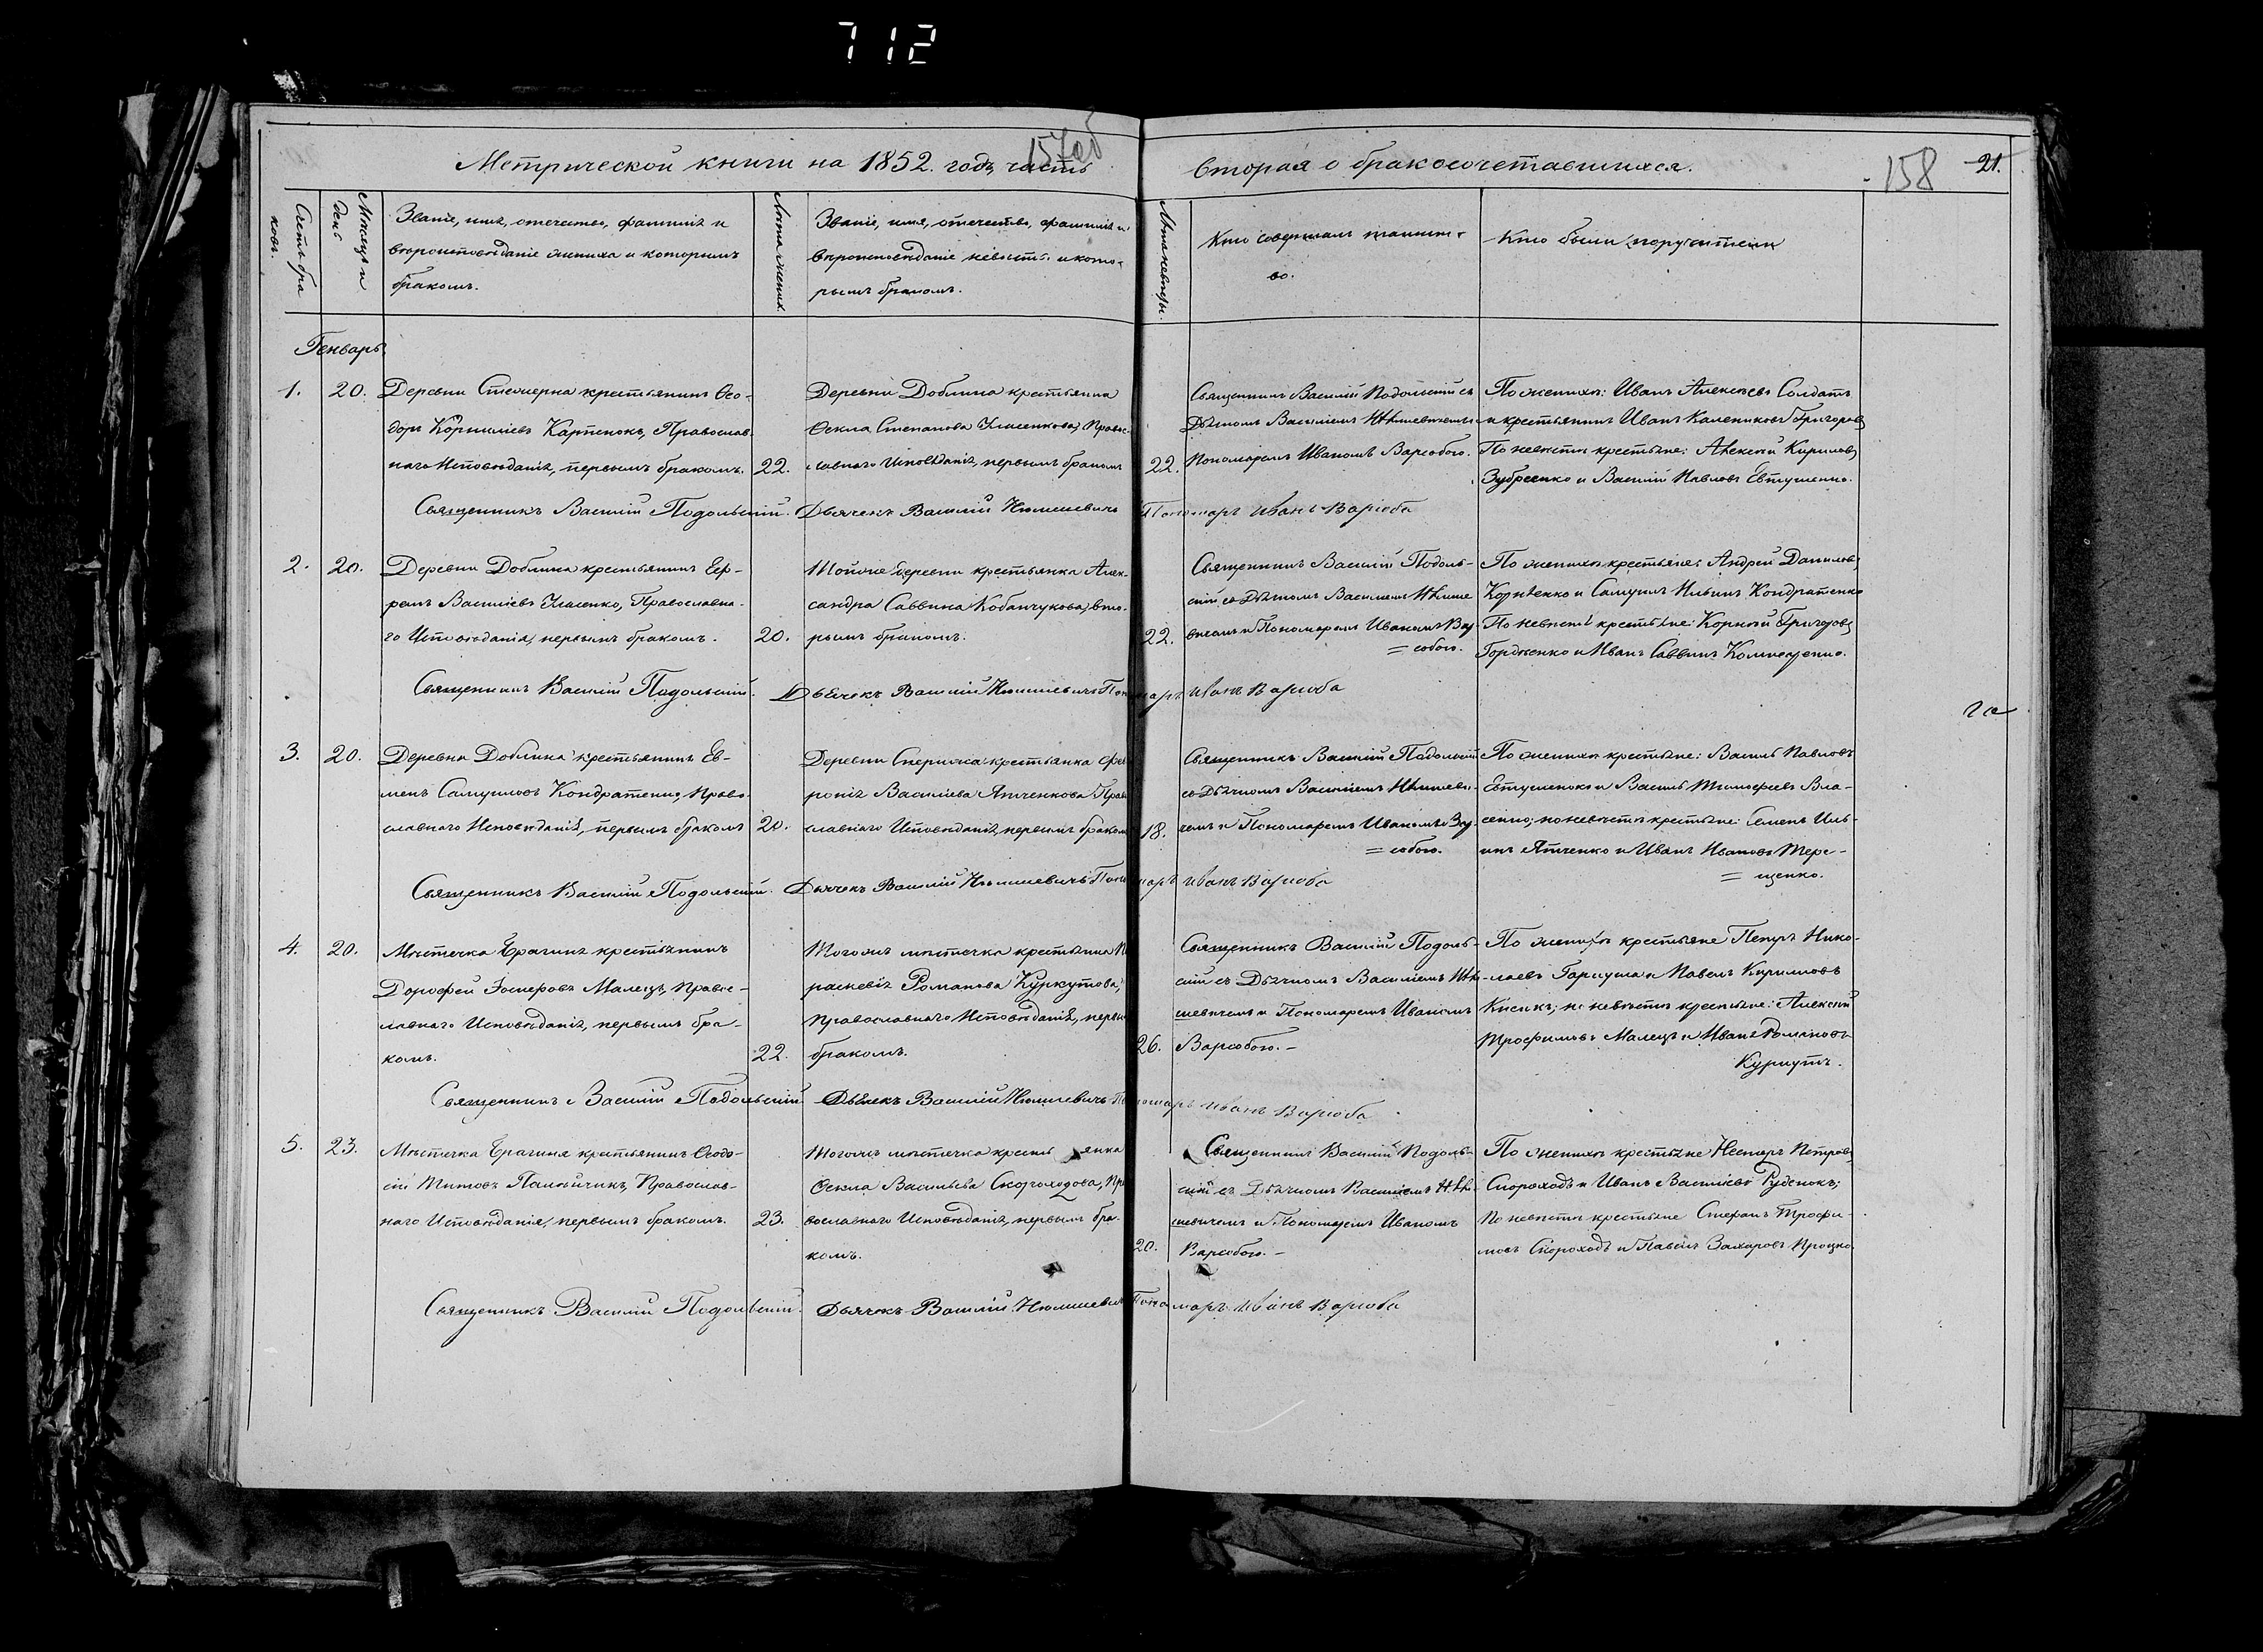 712
Метрической книги на 1852. годъ часть
157об
вторая о бракосочетавшихся.
158
21.
Счетъ браковъ.
Мѣсяцъ и день
Званіе, имя, отечество, фамилія и
вѣроисповѣданіе жениха и которымъ
бракомъ.
Лѣта жениха.
Званіе, имя, отечество, фамилія и
вѣроисповѣданіе невѣсты и кото-
рымъ бракомъ.
Лѣта невѣсты.
Кто совершалъ таинст-
во.
Кто были поручители
Генварь
1.
20.
Деревни Стежерка крестьянинъ Ѳео-
доръ Корниліевъ Карпенокъ, Православ-
наго Исповѣданія, первымъ бракомъ.
22.
Деревни Доблина крестьянка
Ѳекла Степанова Право-
славнаго Исповѣданія, первымъ бракомъ
22.
Священникъ Василій Подольскій съ
Дьячкомъ Василіемъ
Пономаремъ Иваномъ Варсобою.
По женихѣ: Иванъ Алексѣевъ Солдатъ
и крестьянинъ Иванъ Калениковъ Григоровъ
По невѣстѣ крестьяне: Алексѣй Кириловъ
и Василій Павловъ Евтушенко.
Священникъ Василій Подольскій. Дьячекъ Василій Пономарь Иванъ Варсоба
2.
20.
Деревни Доблина крестьянинъ Еф-
ремъ Василіевъ Православна-
го Исповѣданія, первымъ бракомъ.
20.
Тойже деревни крестьянка Алек-
сандра Саввина Кобанчукова, вто-
рымъ бракомъ.
22.
Священникъ Василій Подоль-
скій съ Дьячкомъ Василіемъ
вичемъ и Пономаремъ Иваномъ Вар-
= собою.
По женихѣ крестьяне: Андрей Даниловъ
Корнѣенко и Самуилъ Ильинъ Кондратенко
По невѣстѣ крестьяне: Корнѣй Григоровъ
Гордѣенко и Иванъ Саввинъ
Священникъ Василій Подольскій. Дьячекъ Василій Пономарь Иванъ Варсоба
3.
20.
Деревни Доблина крестьянинъ Ев-
менъ Самуиловъ Кондратенко, Право-
славнаго Исповѣданія, первымъ бракомъ
20.
Деревни Сперижа крестьянка Фев-
ронія Василіева Ятченкова Право-
славнаго Исповѣданія, первымъ бракомъ
18.
Священникъ Василій Подольскій
съ Дьячкомъ Василіемъ
чемъ и Пономаремъ Иваномъ Вар-
= собою.
По женихѣ крестьяне: Василь Павловъ
Евтушенокъ и Василь Тимофеевъ Вла-
сенко; по невѣстѣ крестьяне: Семенъ Иль-
инъ Ятченко и Иванъ Ивановъ Тере-
= щенко.
Священникъ Василій Подольскій. Дьячекъ Василій Пономарь Иванъ Варсоба
4.
20.
Мѣстечка Брагина крестьянинъ
Дорофей Іосифовъ Малецъ, Право-
славнаго Исповѣданія, первымъ бра-
комъ.
22.
Тогожъ мѣстечка крестьянка Па-
раскевія Романова Куркутова,
Православнаго Исповѣданія, первымъ
бракомъ.
26.
Священникъ Василій Подоль-
скій съ Дьячкомъ Василіемъ
шевичемъ и Пономаремъ Иваномъ
Варсобою. –
По женихѣ крестьяне Петръ Нико-
лаевъ и Павелъ Кириловъ
по невѣстѣ крестьяне: Алексѣй
Трофимовъ Малецъ и Иванъ Романовъ
Куркутъ.
Священникъ Василій Подольскій Дьячекъ Василій Пономарь Иванъ Варсоба
5.
23.
Мѣстечка Брагина крестьянинъ Ѳеодо-
сій Титовъ Православ-
наго Исповѣданія, первымъ бракомъ.
23.
Тогожъ мѣстечка крестьянка
Ѳекла Васильева Скороходова, Пра-
вославнаго Исповѣданія, первымъ бра-
комъ.
20.
Священникъ Василій Подоль-
скій съ Дьячкомъ Василіемъ
шевичемъ и Пономаремъ Иваномъ
Варсобою. –
По женихѣ крестьяне Несторъ Петровъ
Скороходъ и Иванъ Василіевъ Руденокъ;
По невѣстѣ крестьяне Стефанъ Трофи-
мовъ Скороходъ и Павелъ Захаровъ Процко.
Священникъ Василій Подольскій. Дьячекъ Василій Пономарь Иванъ Варсоба